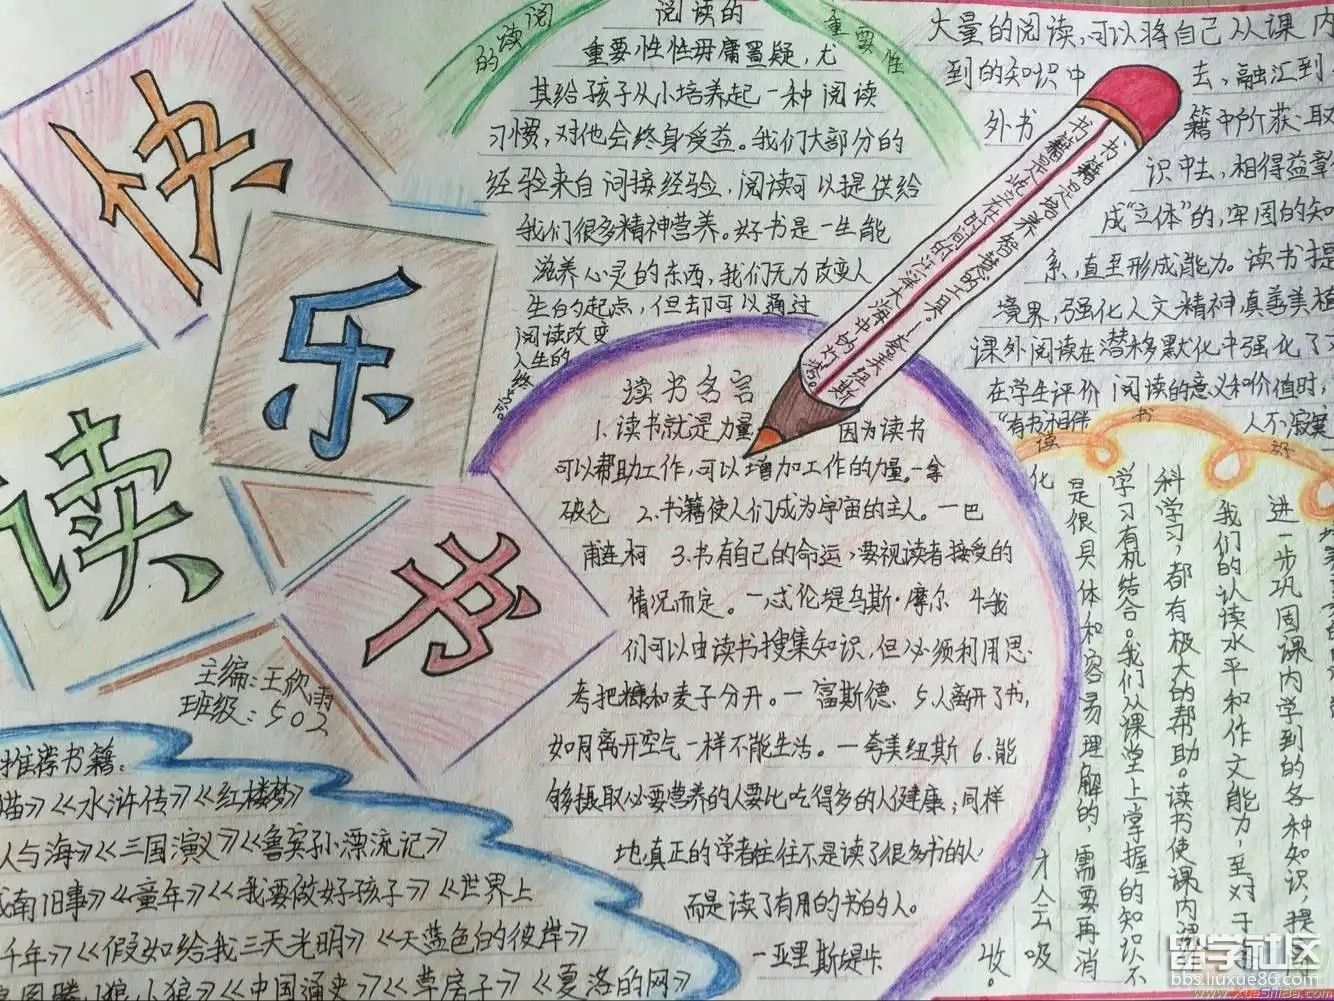 快
乐
读
书
主编:王欣雨
班级:502
阅读的重要性
阅读的
重要性性毋庸置疑,尤
其给孩子从小培养起一种阅读
习惯,对他会终身受益。我们大部分的
经验来自间接经验,阅读可以提供给
我们很多精神营养。好书是一生能
滋养心灵的东西,我们无力改变人
生的起点,但却可以通过
阅读改变
人生的
终点。
书籍是培养智慧的工具。—夸美纽斯
书籍是屹立在时间的汪洋大海中的灯塔。
大量的阅读,可以将自己从课内
到的知识中 去,融汇到
外书 籍中所获取
识中去,相得益彰
成“立体”的,牢固的知
系,直至形成能力。读书提
境界,强化人文精神,真善美植
课外阅读在潜移默化中强化了
在学生评价阅读的意义和价值时,
“有书相伴 人不寂寞
读书名言
1.读书就是力量 因为读书
可以帮助工作,可以增加工作的力量。—拿
破仑 2.书籍使人们成为宇宙的主人。—巴
甫连柯 3.书有自己的命运,要视读者接受的
情况而定。—忒伦提乌斯·摩尔 4.我
们可以由读书搜集知识,但必须利用思
考把糠和麦子分开。—富斯德 5.人离开了书,
如同离开空气一样不能生活。—夸美纽斯 6.能
够摄取必要营养的人要比吃得多的人健康;同样
地,真正的学者往往不是读了很多书的人
而是读了有用的书的人。
—亚里斯提卡
读书好
进一步巩固课内学到的各种知识,提
我们的认读水平和作文能力,至对于
科学习,都有极大的帮助。读书使课内课
学习有机结合。我们从课堂上掌握的知识不
是很具体和容易理解的,需要再消
化 才会吸收。
推荐书籍:
猫》《水浒传》《红楼梦》
人与海》《三国演义》《鲁宾孙漂流记》
城南旧事》《童年》《我要做好孩子》《世界上
千年》《假如给我三天光明》《天蓝色的彼岸》
狼图腾,小狼小狼》《中国通史》《草房子》《夏洛的网》
留学社区
bbs.liuxue86.com